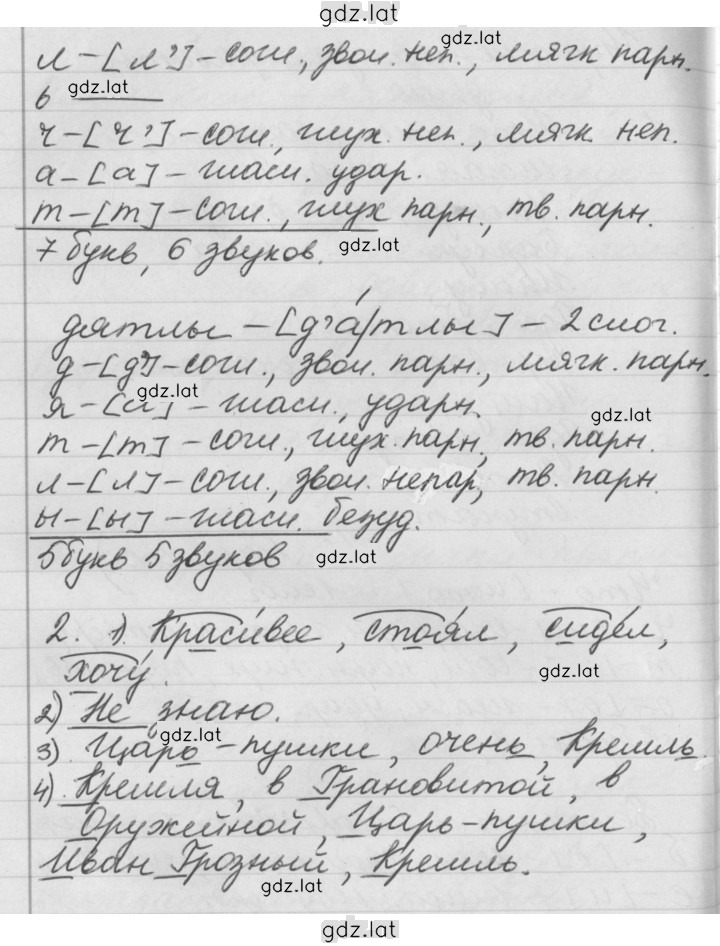 gdz.lat
л-[л']-согл., звон. неп., мягк парн.
gdz.lat
gdz.lat
ь
ч-[ч']-согл., глух. неп., мягк. неп.
а-[а]-гласн. удар.
т-[т]-согл., глух парн., тв. парн.
7 букв, 6 звуков.
gdz.lat
дятлы-[д'а́/тлы]-2 слог.
д-[д']-согл., звон. парн., мягк. парн.
gdz.lat
я-[а]-гласн., ударн.
gdz.lat
т-[т]-согл., глух. парн., тв. парн.
л-[л]-согл., звон. непар, тв. парн.
ы-[ы]-гласн. безуд.
5 букв 5 звуков
gdz.lat
2. 1). Краси́вее, стоя́л, сиде́л,
хочу́.
gdz.lat
2) Не знаю.
gdz.lat
3) Царь-пушки, очень, Кремль.
4) Кремля, в Грановитой, в
Оружейной, Царь-пушки,
Иван Грозный, Кремль.
gdz.lat
gdz.lat